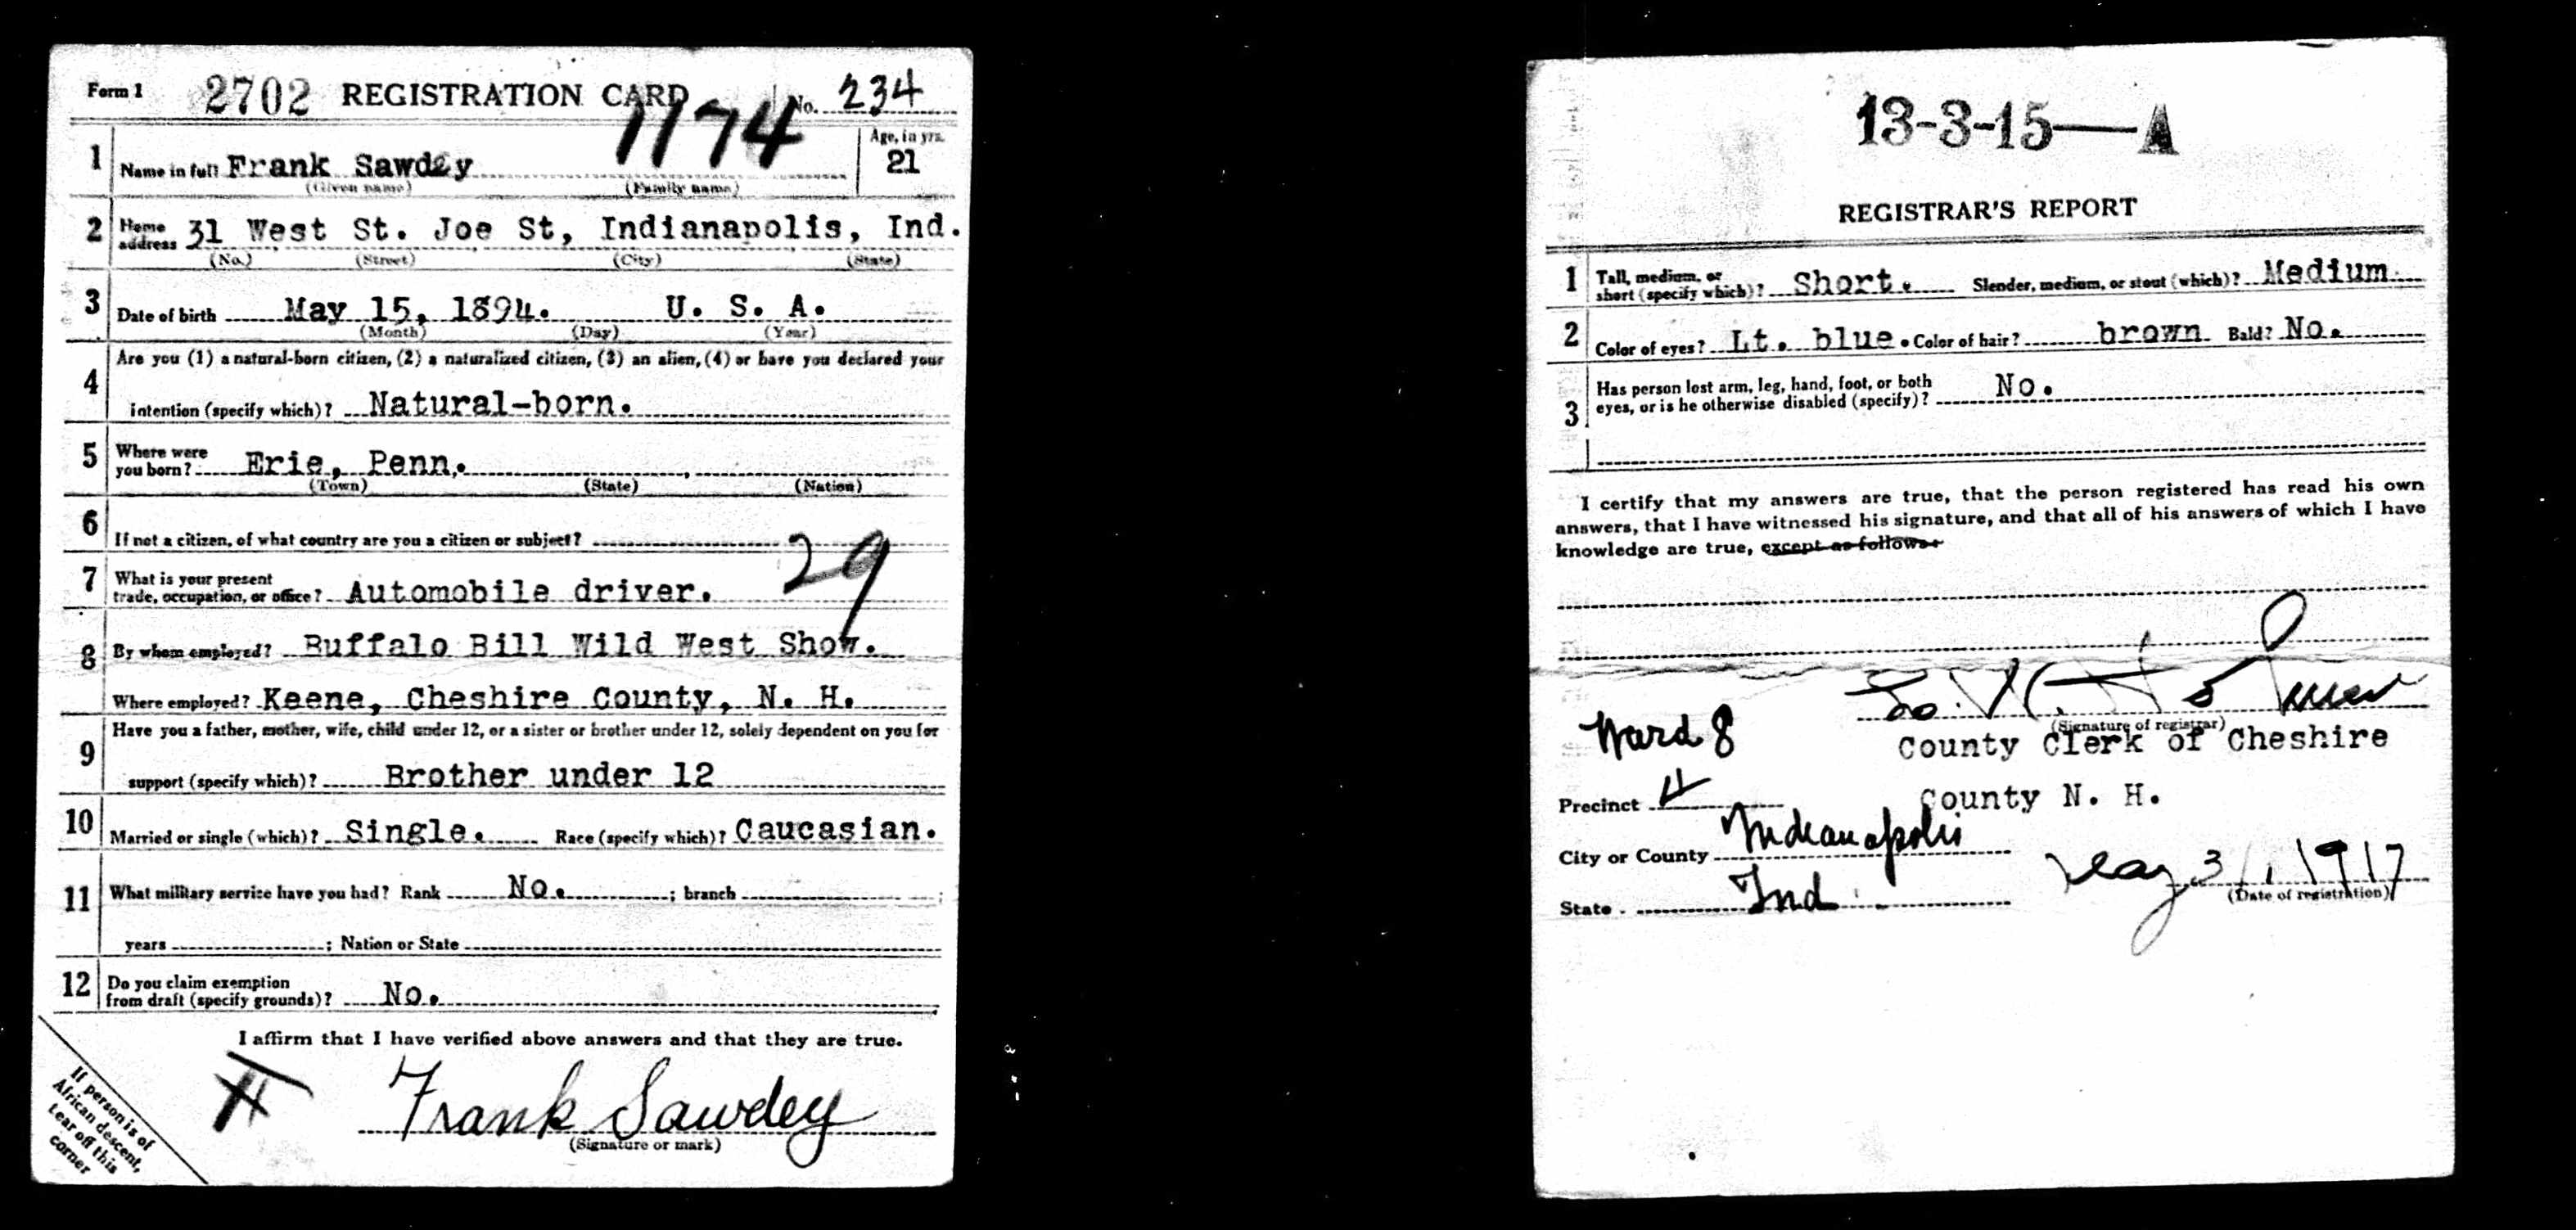 Form 1 2702 REGISTRATION CARD No. 234
1174
1 Name in full Frank Sawdey Age, in yrs. 21
(Given name) (Family name)
2 Home address 31 West St. Joe St, Indianapolis, Ind.
(No.) (Street) (City) (State)
3 Date of birth May 15, 1894. U. S. A.
(Month) (Day) (Year)
4 Are you (1) a natural-born citizen, (2) a naturalized citizen, (3) an alien, (4) or have you declared your
intention (specify which)? Natural-born.
5 Where were you born? Erie, Penn.
(Town) (State) (Nation)
6 If not a citizen, of what country are you a citizen or subject?
29
7 What is your present trade, occupation, or office? Automobile driver.
8 By whom employed? Buffalo Bill Wild West Show.
Where employed? Keene, Cheshire County, N. H.
9 Have you a father, mother, wife, child under 12, or a sister or brother under 12, solely dependent on you for
support (specify which)? Brother under 12
10 Married or single (which)? Single. Race (specify which)? Caucasian.
11 What military service have you had? Rank No. ; branch ;
years ; Nation or State
12 Do you claim exemption from draft (specify grounds)? No.
I affirm that I have verified above answers and that they are true.
Frank Sawdey
(Signature or mark)
If person is of
African descent,
tear off this
corner
13-3-15—A
REGISTRAR'S REPORT
1 Tall, medium, or short (specify which)? Short. Slender, medium, or stout (which)? Medium
2 Color of eyes? Lt. blue. Color of hair? brown Bald? No.
3 Has person lost arm, leg, hand, foot, or both eyes, or is he otherwise disabled (specify)? No.
I certify that my answers are true, that the person registered has read his own
answers, that I have witnessed his signature, and that all of his answers of which I have
knowledge are true, except as follows:
(Signature of registrar)
Ward 8 County Clerk of Cheshire
Precinct County N. H.
City or County Indianapolis
State Ind May 31, 1917
(Date of registration)